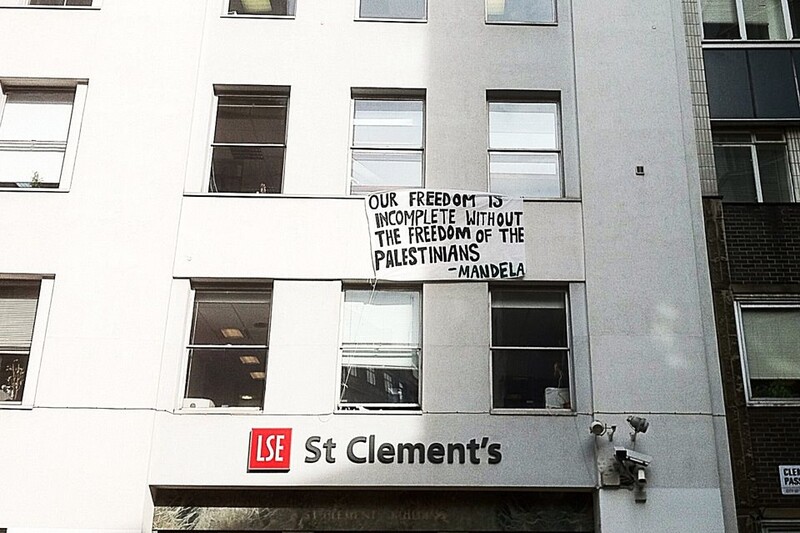 OUR FREEDOM IS
INCOMPLETE WITHOUT
THE FREEDOM OF THE
PALESTINIANS
-MANDELA
LSE St Clement's
ST CLEMENT'S BUILDING